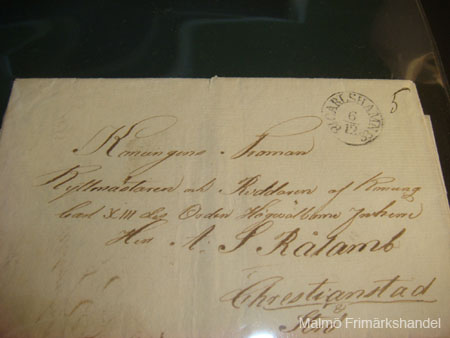 CARLSHAMN
6
12
5
Konungens Troman
Ryttmästaren och Riddaren af Konung
Carl XIII des Orden Högvälborne
Herr A. S Rålamb
Christianstad
Malmö Frimärkshandel